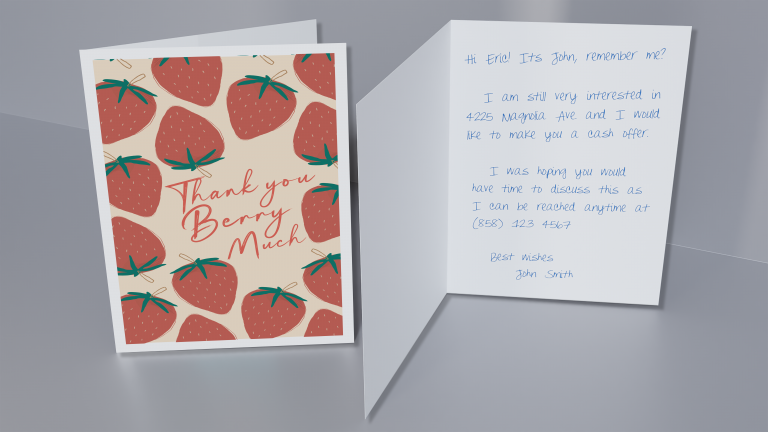 Thank you
Berry
Much
Hi Eric! It's John, remember me?
I am still very interested in
4225 Magnolia Ave and I would
like to make you a cash offer.
I was hoping you would
have time to discuss this as
I can be reached anytime at
(858) 123 4567
Best wishes
John Smith